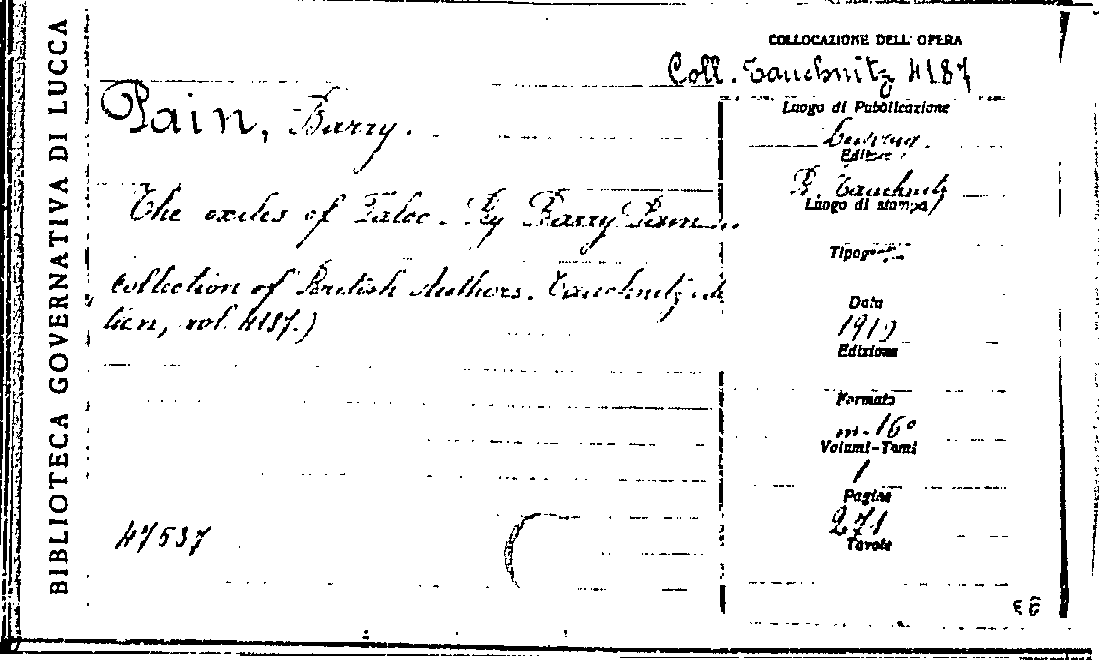 BIBLIOTECA GOVERNATIVA DI LUCCA
COLLOCAZIONE DELL' OPERA
Coll. Tauchnitz 4187
Pain, Barry.
The exiles of Faloo. By Barry Pain
Collection of British Authors. Tauchnitz edi
tion, vol. 4187.)
47537
Luogo di Pubblicazione
Editore
B. Tauchnitz
Luogo di stampa
Tipografia
Data
1910
Edizione
Formato
in-16°
Volumi-Tomi
1
Pagine
271
Tavole